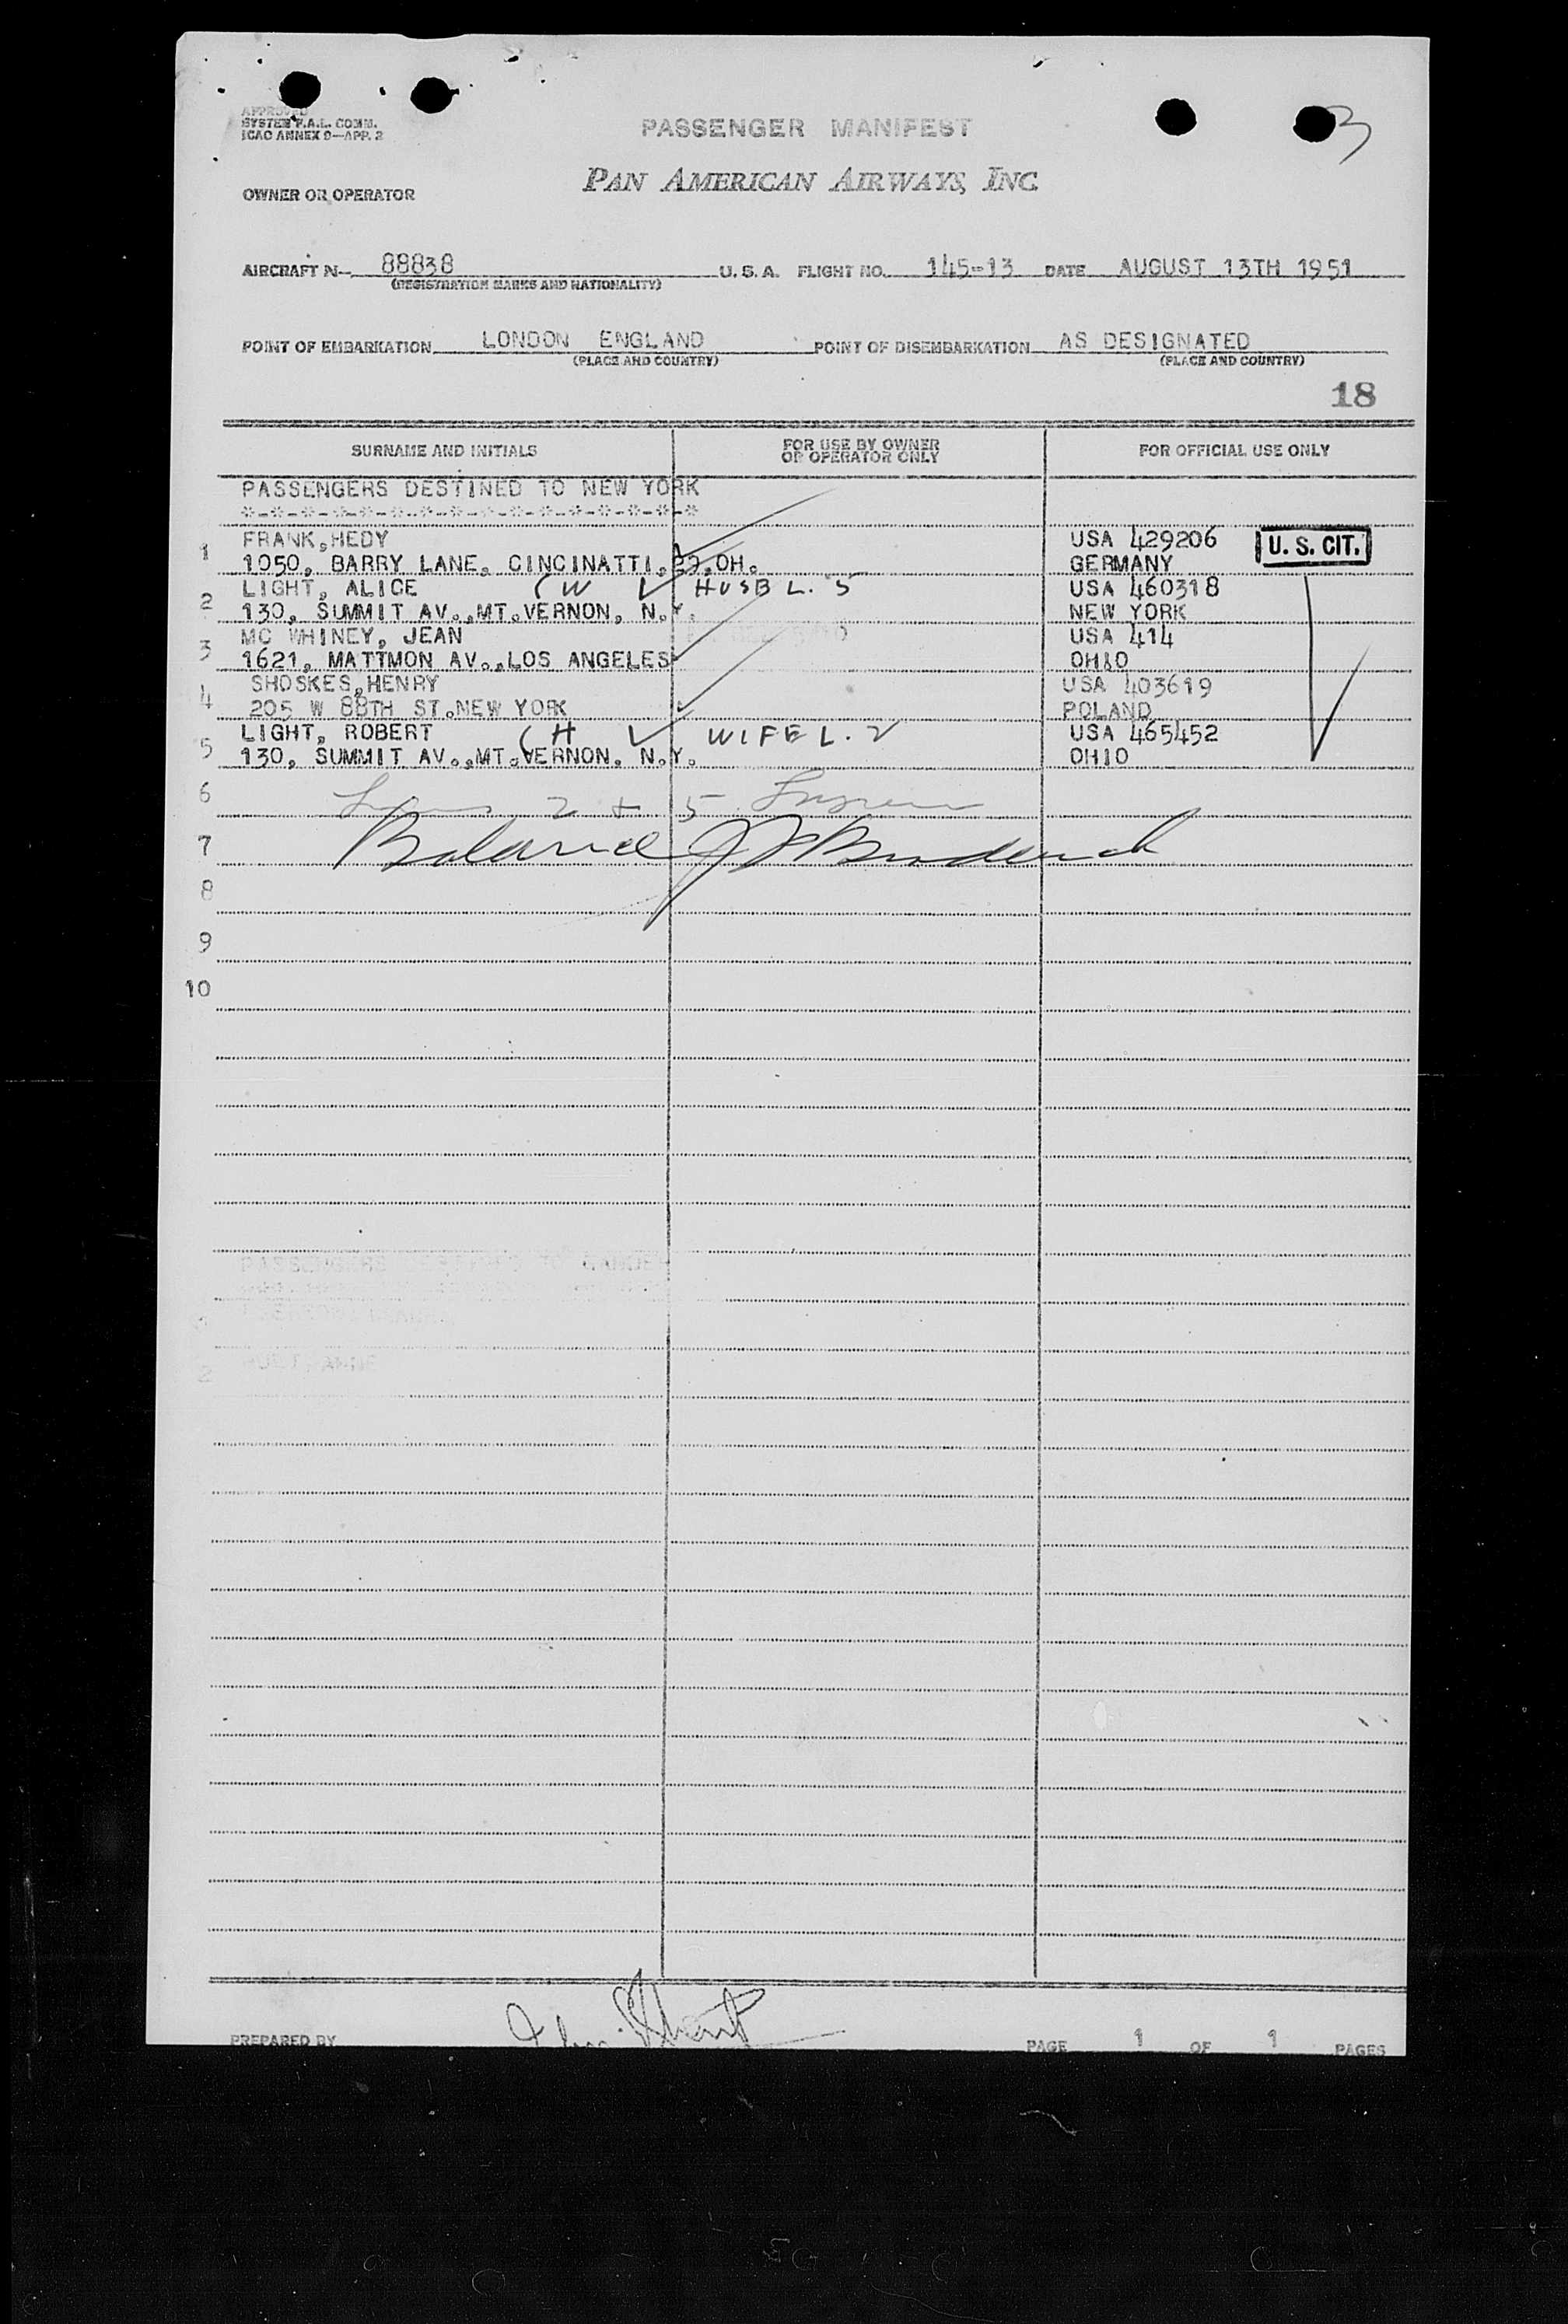 3
APPROVED
SYSTEM F.A.L. COMM.
ICAO ANNEX 9—APP. 2
PASSENGER MANIFEST
PAN AMERICAN AIRWAYS, INC.
OWNER OR OPERATOR
AIRCRAFT N— 88838 U. S. A. FLIGHT NO. 145-13 DATE AUGUST 13TH 1951
(REGISTRATION MARKS AND NATIONALITY)
POINT OF EMBARKATION LONDON ENGLAND POINT OF DISEMBARKATION AS DESIGNATED
(PLACE AND COUNTRY) (PLACE AND COUNTRY)
18
SURNAME AND INITIALS FOR USE BY OWNER OR OPERATOR ONLY FOR OFFICIAL USE ONLY
PASSENGERS DESTINED TO NEW YORK
*-*-*-*-*-*-*-*-*-*-*-*-*-*-*-*
1 FRANK,HEDY USA 429206 U. S. CIT.
1050, BARRY LANE, CINCINATTI, OH. GERMANY
2 LIGHT, ALICE (W HUSB L. 5 USA 460318
130, SUMMIT AV.,MT.VERNON, N.Y. NEW YORK
3 MC WHINEY, JEAN USA 414
1621, MATTMON AV.,LOS ANGELES OHIO
4 SHOSKES,HENRY USA 403619
205 W 88TH ST.NEW YORK POLAND
5 LIGHT, ROBERT (H WIFE L. 2 USA 465452
130, SUMMIT AV.,MT.VERNON, N.Y. OHIO
6 Lines 2 + 5
7 Balance
8
9
10
PASSENGERS DESTINED TO GANDER
2 HUNT, ANNE
PREPARED BY PAGE 1 OF 1 PAGES